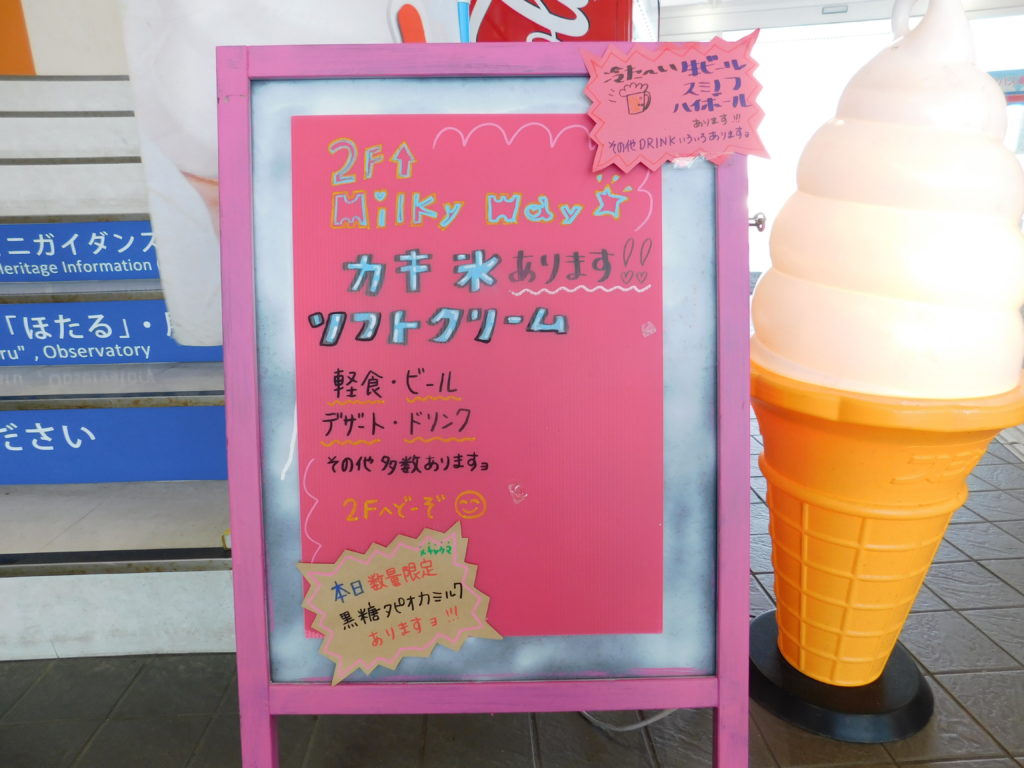 冷た〜い 生ビール
スミノフ
ハイボール
あります!!!
その他DRINKいろいろあります。
2F↑
Milky Way
カキ氷 あります!!
ソフトクリーム
軽食・ビール
デザート・ドリンク
その他 多数ありますョ
2Fへどーぞ
本日 数量限定
黒糖タピオカミルク
ありますョ!!!
ニガイダンス
Heritage Information
「ほたる」・
ru", Observatory
ださい